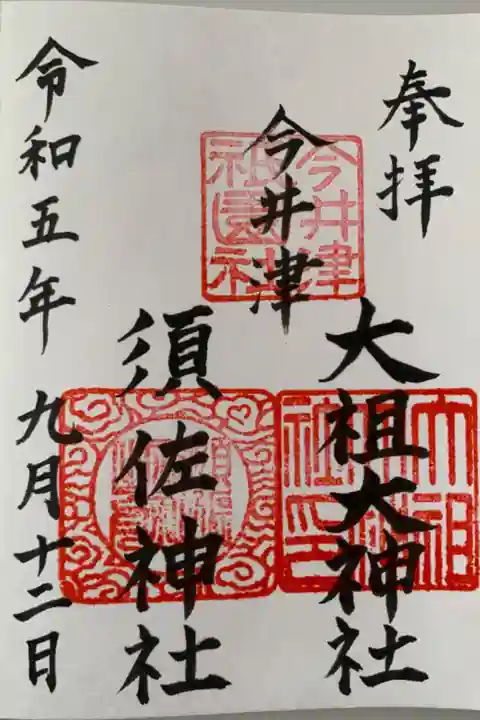 奉拝
大祖大神社
今井津
須佐神社
令和五年九月十二日
今井津
祇園社